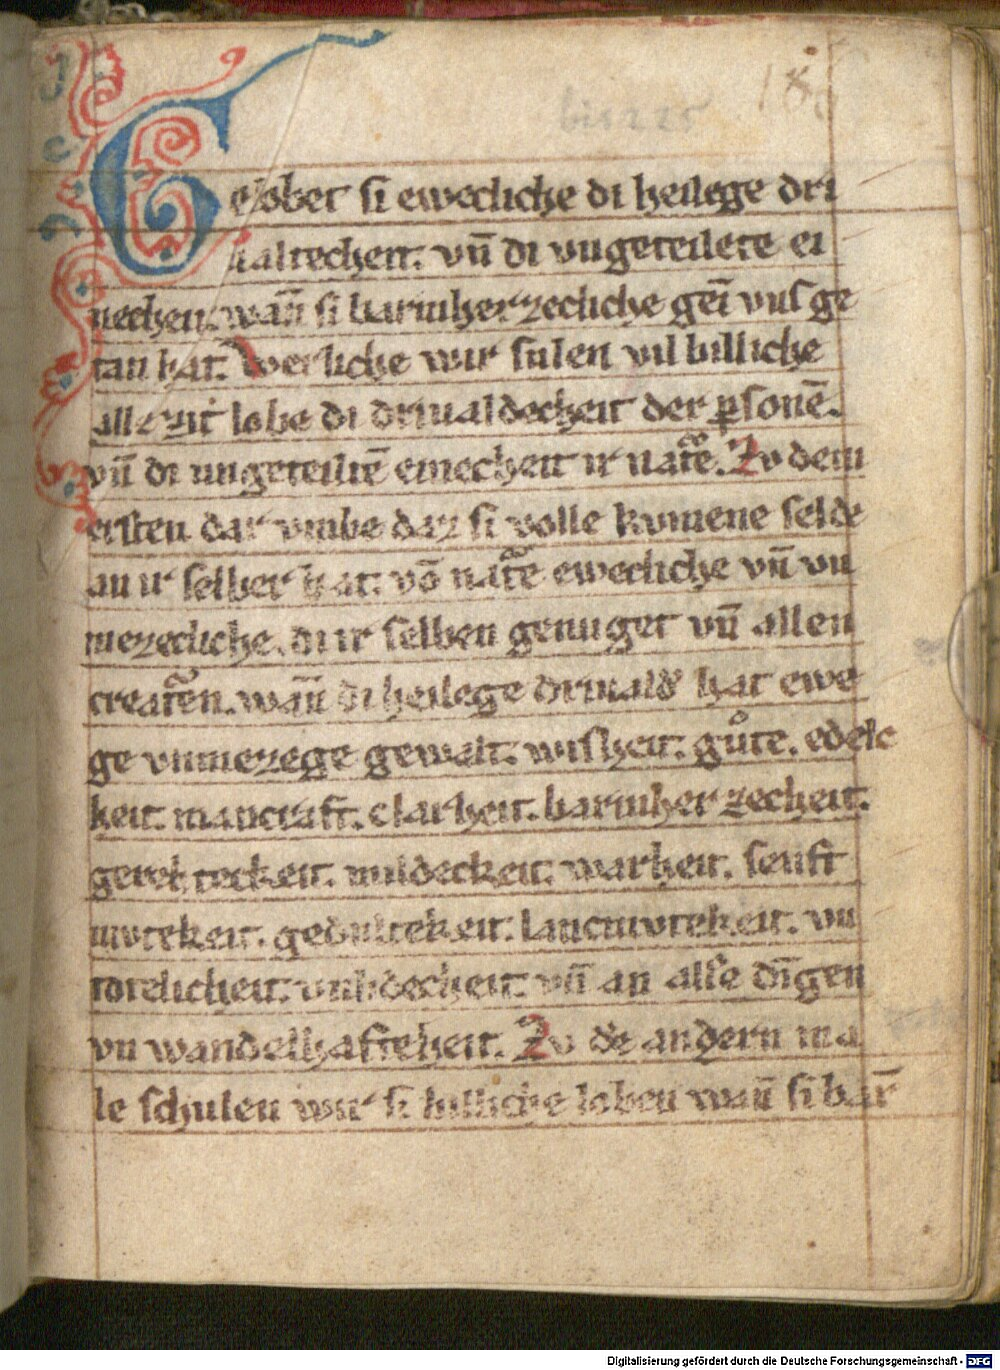 bis 225
Gelobet si ewecliche di heilege dri
ualtecheit. vn̄ di vngeteilete ei
necheit. wan̄ si barmherzecliche geī vns ge
tan hat. Werliche wir sulen vil billiche
alle zit lobē di driualdecheit der ꝑsonē.
vn̄ di ungeteiltē einecheit ir natᵉe. Zv dem
ersten dar vmbe daz si volle kvmene selde
an ir selber hat. vō natᵉe ewecliche vn̄ vn
mezecliche. di ir selben genuget vn̄ allen
creatᵉen. wan̄ di heilege driuald' hat ewe
ge vnmezege gewalt. wisheit. gůte. edele
keit. mancraft. clarheit. barmherzecheit.
gerehteckeit. mildeckeit. warheit. senft
mvtekeit. gedultekeit. lancmvtekeit. vn
totelicheit. vnlidecheit. vn̄ an alle dīgen
vn wandelhaftekeit. Zv dē andern ma
le schulen wir si billiche loben wan̄ si bar̄
Digitalisierung gefördert durch die Deutsche Forschungsgemeinschaft - DFG